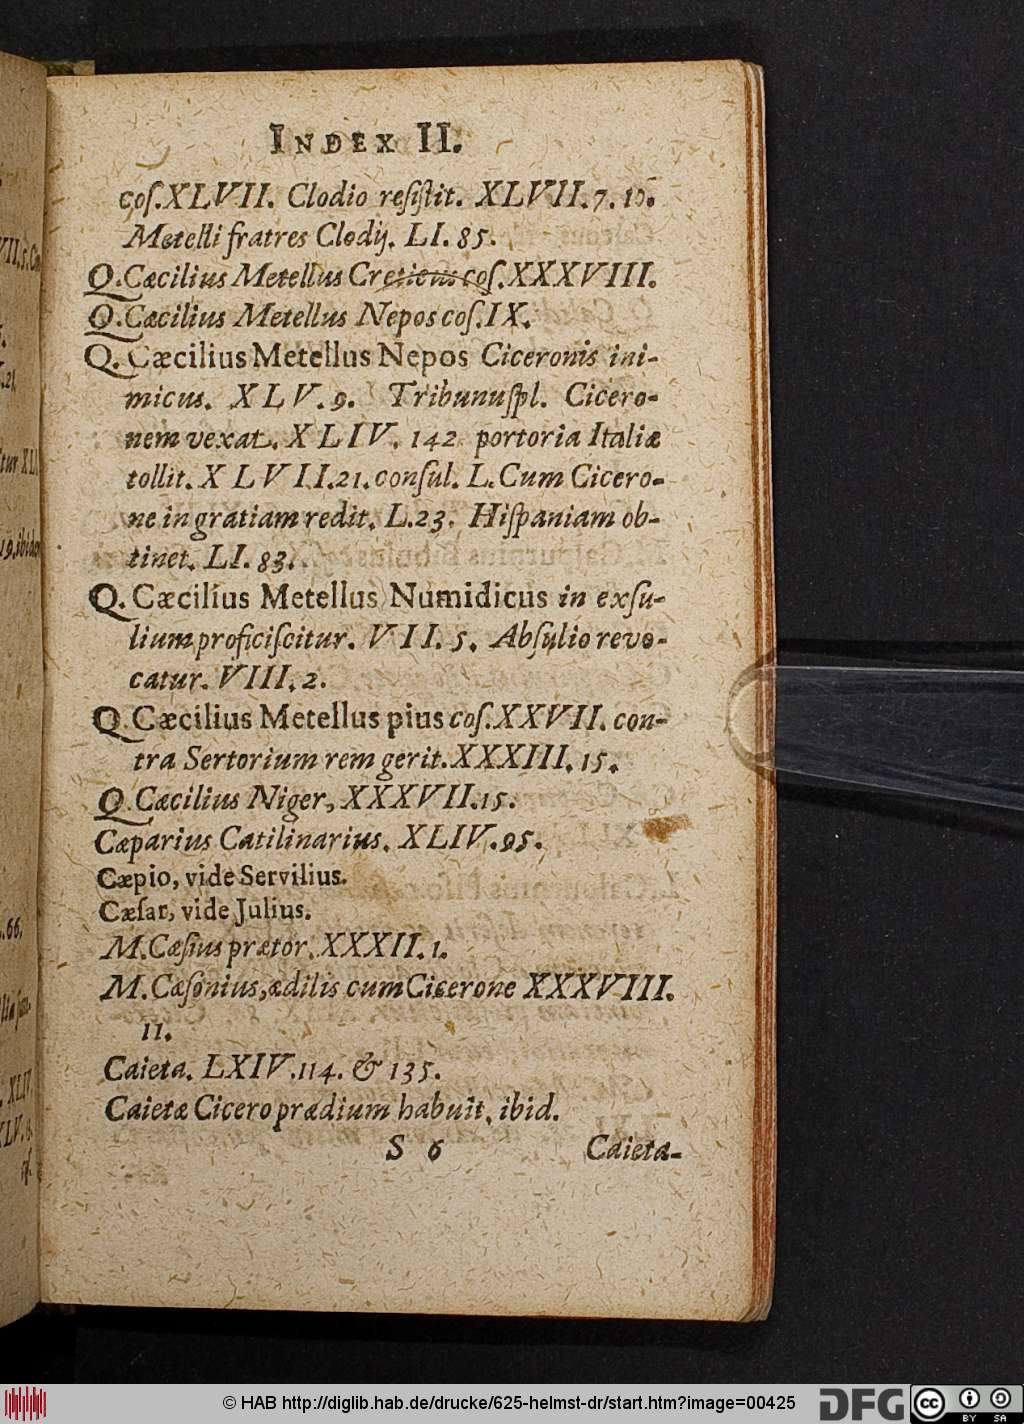 INDEX II.
coſ. XLVII. Clodio reſiſtit. XLVII. 7. 10.
Metelli fratres Clodij. LI. 85.
Q. Cæcilius Metellus Creticus coſ. XXXVIII.
Q. Cæcilius Metellus Nepos coſ. IX.
Q. Cæcilius Metellus Nepos Ciceronis ini-
micus. XLV. 9. Tribunuſpl. Cicero-
nem vexat. XLIV. 142 portoria Italiæ
tollit. XLVII. 21. conſul. L. Cum Cicero-
ne in gratiam redit. L. 23. Hiſpaniam ob-
tinet. LI. 83.
Q. Cæcilius Metellus Numidicus in exſu-
lium proficiſcitur. VII. 5. Abſulio revo-
catur. VIII. 2.
Q. Cæcilius Metellus pius coſ. XXVII. con-
tra Sertorium rem gerit. XXXIII. 15.
Q. Cæcilius Niger, XXXVII. 15.
Cæparius Catilinarius. XLIV. 95.
Cæpio, vide Servilius.
Cæſar, vide Julius.
M. Cæſius prætor. XXXII. 1.
M. Cæſonius, ædilis cum Cicerone XXXVIII.
11.
Caieta. LXIV. 114. & 135.
Caietæ Cicero prædium habuit, ibid.
S 6 Caieta-
© HAB http://diglib.hab.de/drucke/625-helmst-dr/start.htm?image=00425
DFG
cc BY SA